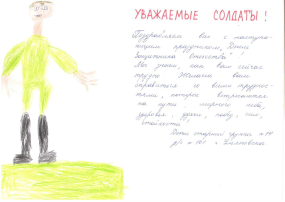 УВАЖАЕМЫЕ СОЛДАТЫ!
Поздравляем вас с наступа-
ющим праздником, Днём
Защитника Отечества!
Мы знаем, как вам сейчас
трудно. Желаем вам
справиться со всеми трудно-
стями, которые встречаются
на пути, мирного неба,
здоровья, удачи, сил,
Дети старшей группы